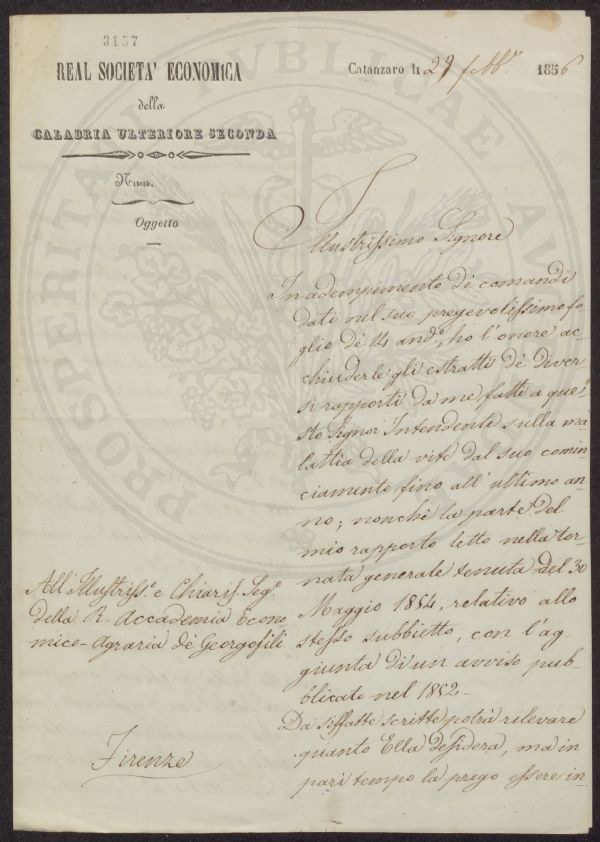 3157
REAL SOCIETA' ECONOMICA
della
CALABRIA ULTERIORE SECONDA
Num.
Oggetto
Catanzaro li 29 febb.º 1856
Illustrissimo Signore
In adempimento de' comandi
dati nel suo pregevolissimo fo
glio de' 14 and.º, ho l'onore ac-
chiuderle gli estratti de' diver-
si rapporti da me fatti a que-
sto Signor Intendente sulla ma
lattia della vite dal suo comin-
ciamento fino all'ultimo an-
no; nonchè la parte del
mio rapporto letto nella tor
nata generale tenuta del 30
Maggio 1854, relativo allo
stesso subbietto, con l'ag-
giunta di un avviso pub-
blicato nel 1852-
Da siffatte scritte potrà rilevare
quanto Ella desidera, ma in
pari tempo la prego essere in-
All'Illustriss.º e Chiaris. Seg.º
della R. Accademia Econo-
mico-Agraria de' Georgofili
Firenze
PROSPERITATI PUBLICAE AU